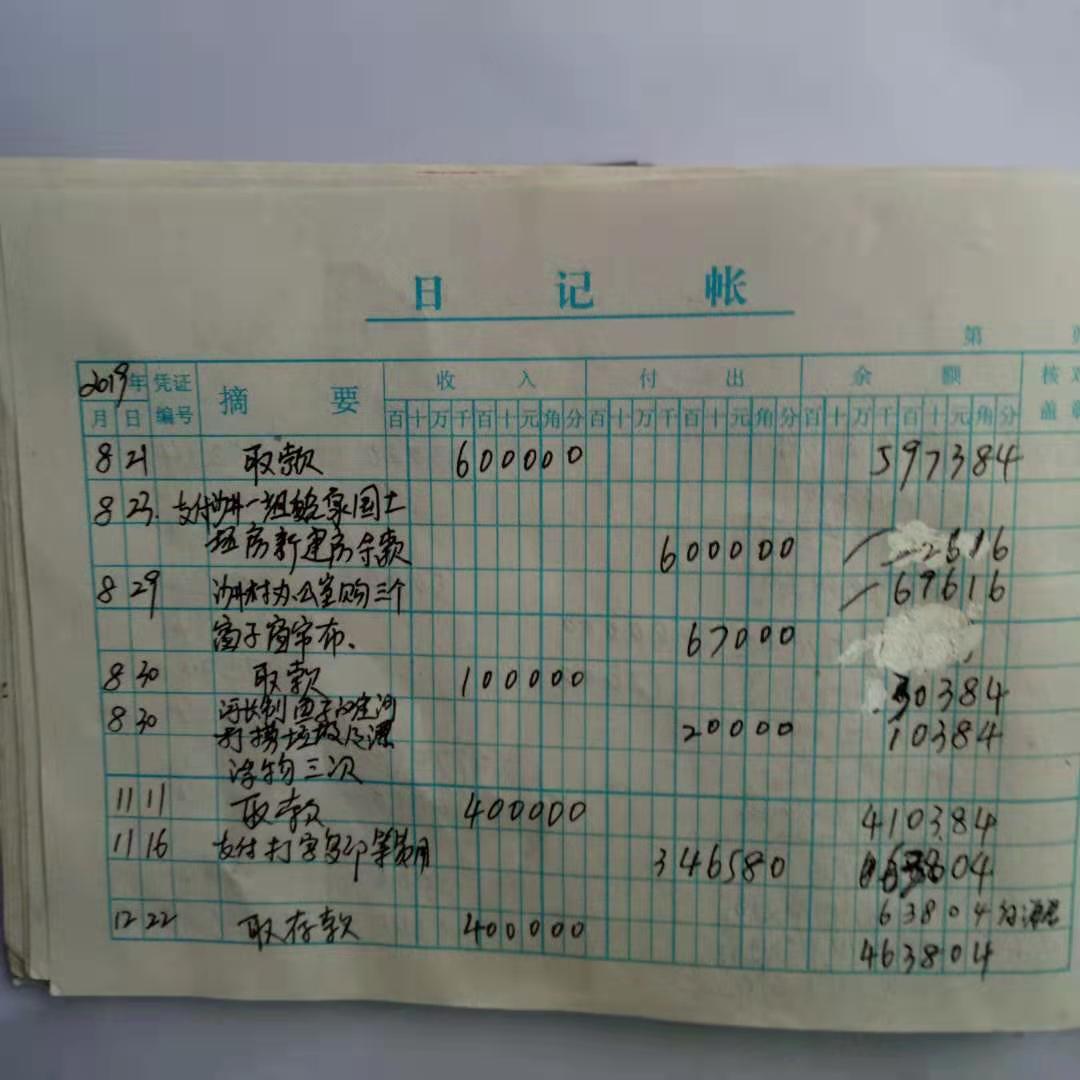 日 记 帐
第
2019年 凭证 摘 要 收 入 付 出 余 额 核对
月 日 编号 百十万千百十元角分 百十万千百十元角分 百十万千百十元角分 盖
8 21 取款 600000 597384
8 23. 支付 一组 国土
坯房新建房余款 600000 2616
8 29 村办公室购三个 69616
窗子窗帘布、 67000
8 30 取款 100000 30384
8 30 河长制
打捞垃圾及漂 20000 10384
浮物三次
11 11 取款 400000 410384
11 16 支付打字复印等费用 346580 804
63804
12 22 取存款 400000
463804